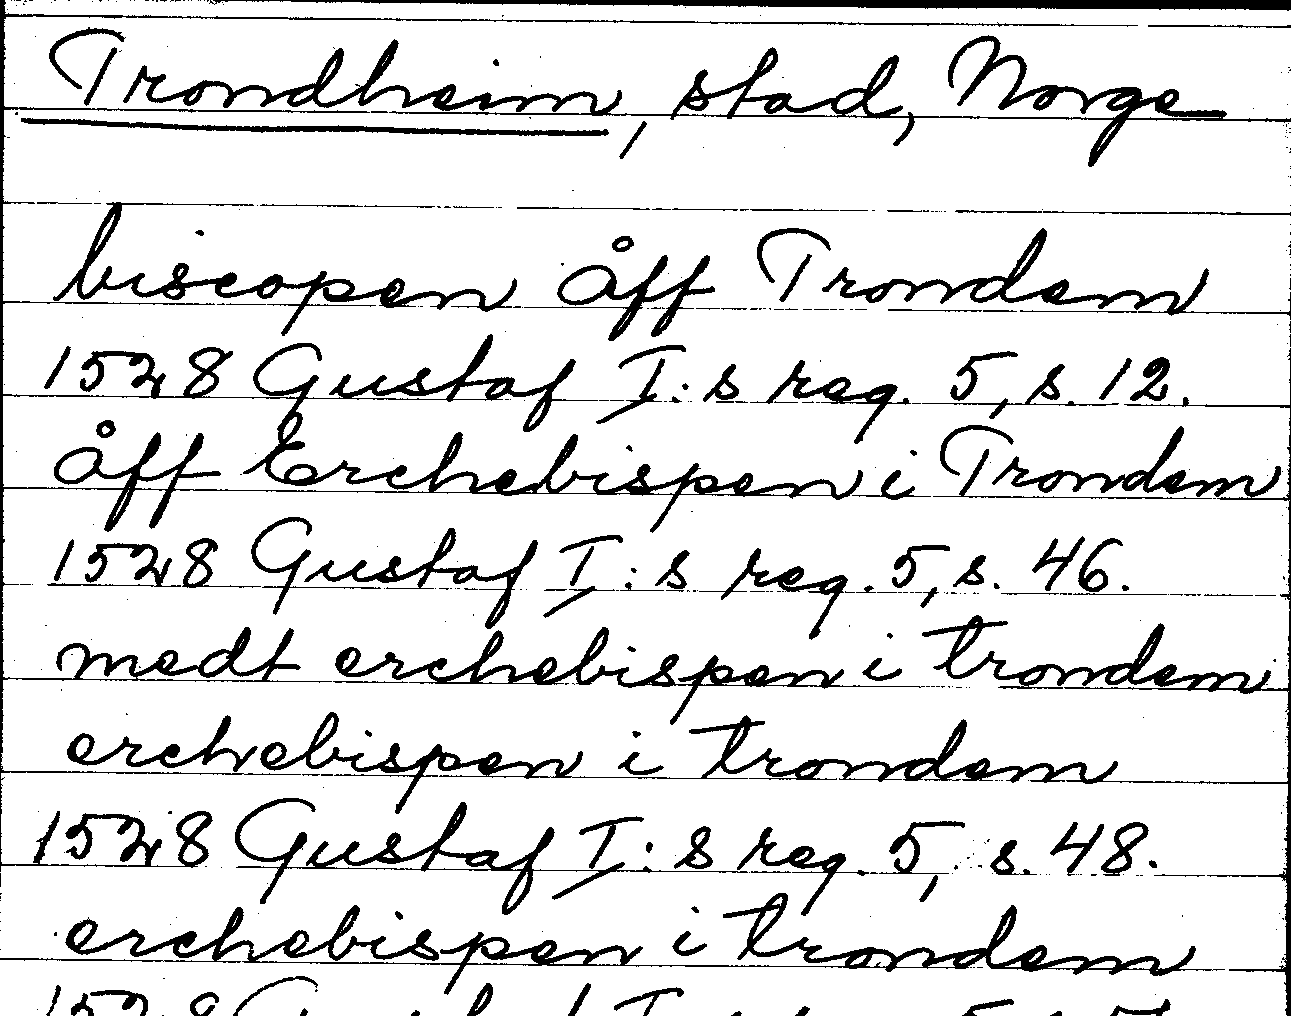 Trondheim, stad, Norge
biscopen åff Trondem
1528 Gustaf I:s reg. 5, s. 12.
åff Erchebispen i Trondem
1528 Gustaf I:s reg. 5, s. 46.
medt erchebispen i trondem
erchebispen i trondem
1528 Gustaf I:s reg. 5, s. 48.
erchebispen i trondem
1528 Gustaf I:s reg. 5, s.